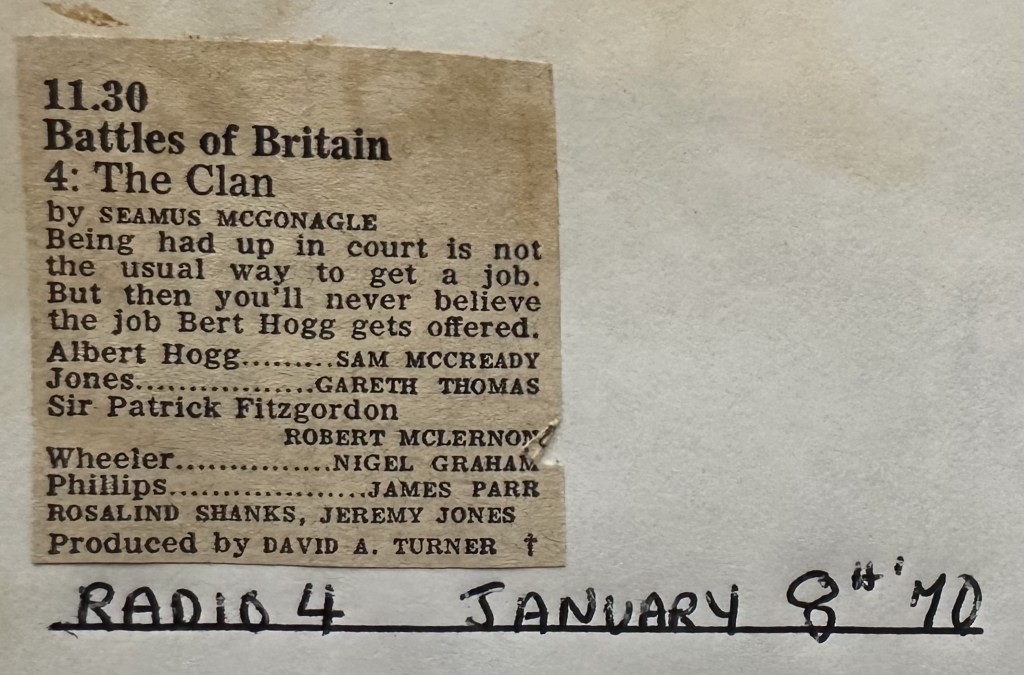 11.30
Battles of Britain
4: The Clan
by SEAMUS MCGONAGLE
Being had up in court is not
the usual way to get a job.
But then you'll never believe
the job Bert Hogg gets offered.
Albert Hogg.........SAM MCCREADY
Jones..................GARETH THOMAS
Sir Patrick Fitzgordon
ROBERT MCLERNON
Wheeler...............NIGEL GRAHAM
Phillips....................JAMES PARR
ROSALIND SHANKS, JEREMY JONES
Produced by DAVID A. TURNER †
RADIO 4 JANUARY 8TH '70